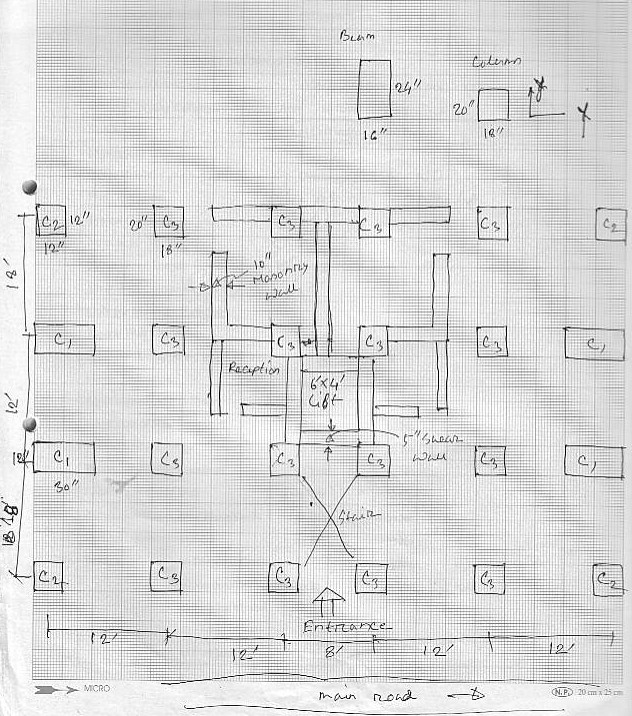 Beam
Column
24"
16"
20"
18"
Y
X
C2 12"
12"
20" C3
18"
C3
C3
C3
C2
18'
10"
Masonry
Wall
C1
C3
C3
C3
C3
C1
Reception
12'
6'X4'
Lift
5" Shear
Wall
C1
30"
C3
C3
C3
C3
C1
Stair
18'
C2
C3
C3
C3
C3
C2
Entrance
12'
12'
8'
12'
12'
MICRO
main road
N.P. 20 cm x 25 cm